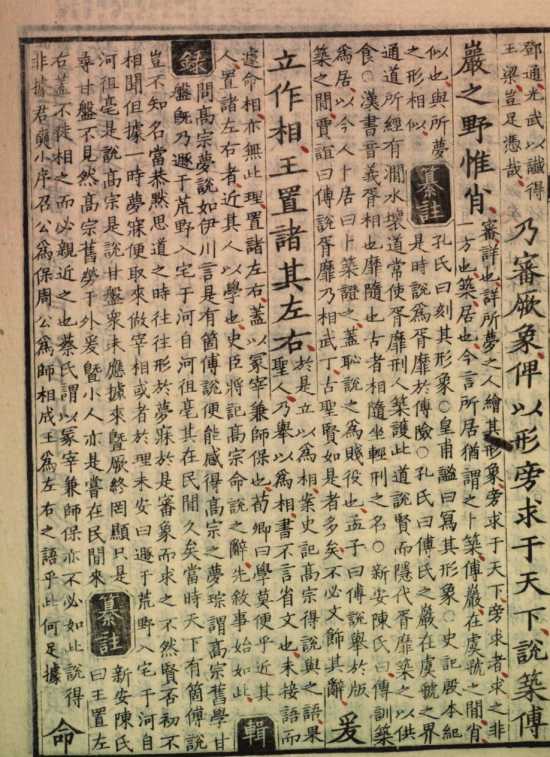 鄧通光武以讖得
王梁豈足憑哉
乃審厥象俾以形旁求于天下說築傅
巖之野惟肖
審詳也詳所夢之人繪其形象旁求于天下旁求者求之非
一方也築居也今言所居猶謂之卜築傅巖在虞虢之間肖
似也與所夢
之形相似
纂註
孔氏曰刻其形象○皇甫謐曰寫其形象○史記殷本紀
是時說爲胥靡於傅險○孔氏曰傅氏之巖在虞虢之界
通道所經有澗水壞道常使胥靡刑人築護此道說賢而隱代胥靡築之以供
食○漢書音義胥相也靡隨也古者相隨坐輕刑之名○新安陳氏曰傅訓築
爲居以今人卜居曰卜築證之蓋恥說之爲賤役也孟子曰傅說舉於版
築之間賈誼曰傅說胥靡乃相武丁古聖賢如是者多矣不必文飾其辭
爰
立作相王置諸其左右
於是立以爲相案史記高宗得說與之語果
聖人乃舉以爲相書不言省文也未接語而
遽命相亦無此理置諸左右蓋以冢宰兼師保也荀卿曰學莫便乎近其
人置諸左右者近其人以學也史臣將記高宗命說之辭先敘事始如此
輯
錄
問高宗夢說如伊川言是有箇傅說便能感得高宗之夢琮謂高宗舊學甘
盤既乃遯于荒野入宅于河自河徂亳其在民間久矣當時天下有箇傅說
豈不知名當恭默思道之時往往形於夢寐於是審象而求之不然賢否初不
相聞但據一時夢寐便取來做宰相或者於理未安曰遯于荒野入宅于河自
河徂亳是說高宗是說甘盤衆未應據來暨厥終罔顯只是
尋甘盤不見然高宗舊勞于外爰暨小人亦是嘗在民間來
纂註
新安陳氏
曰王置左
右蓋不徒相之而必親近之也蔡氏謂以冢宰兼師保亦不必如此說得
非據君奭小序召公爲保周公爲師相成王爲左右之語乎此何足據
命